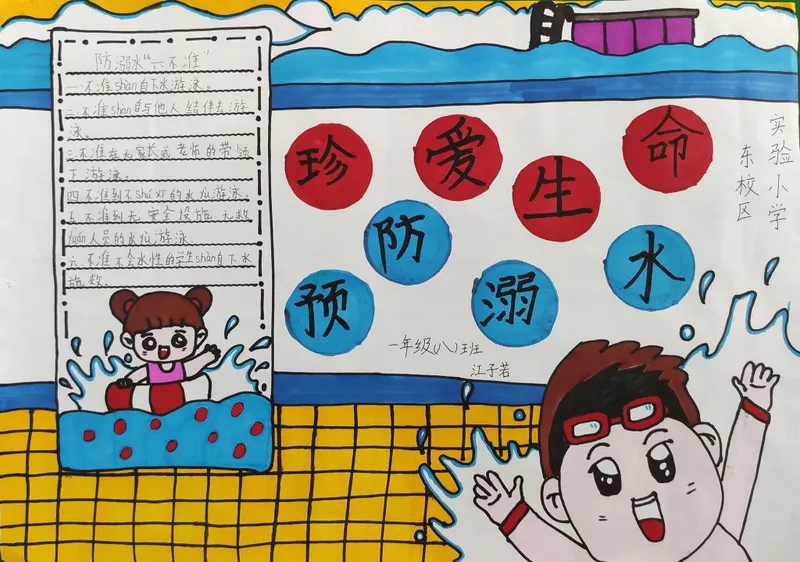 防溺水“六不准”
一.不准shàn自下水游泳。
二.不准shàn自与他人结伴去游
泳。
三.不准在无家长或老师的带领
下游泳。
四.不准到不shú悉的水域游泳。
五.不准到无安全设施、无救
yuán人员的水域游泳。
六.不准不会水性的学生shàn自下水
施救。
珍爱生命
预防溺水
一年级(八)班
江子若
实验小学
东校区